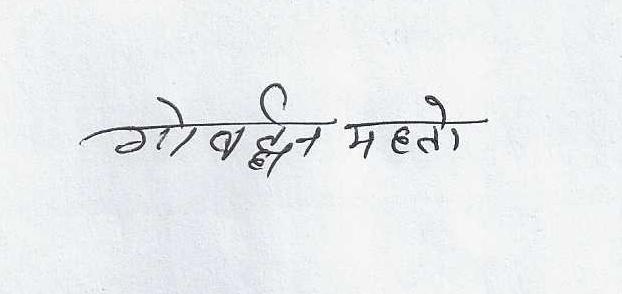 गोवर्द्धन महतो